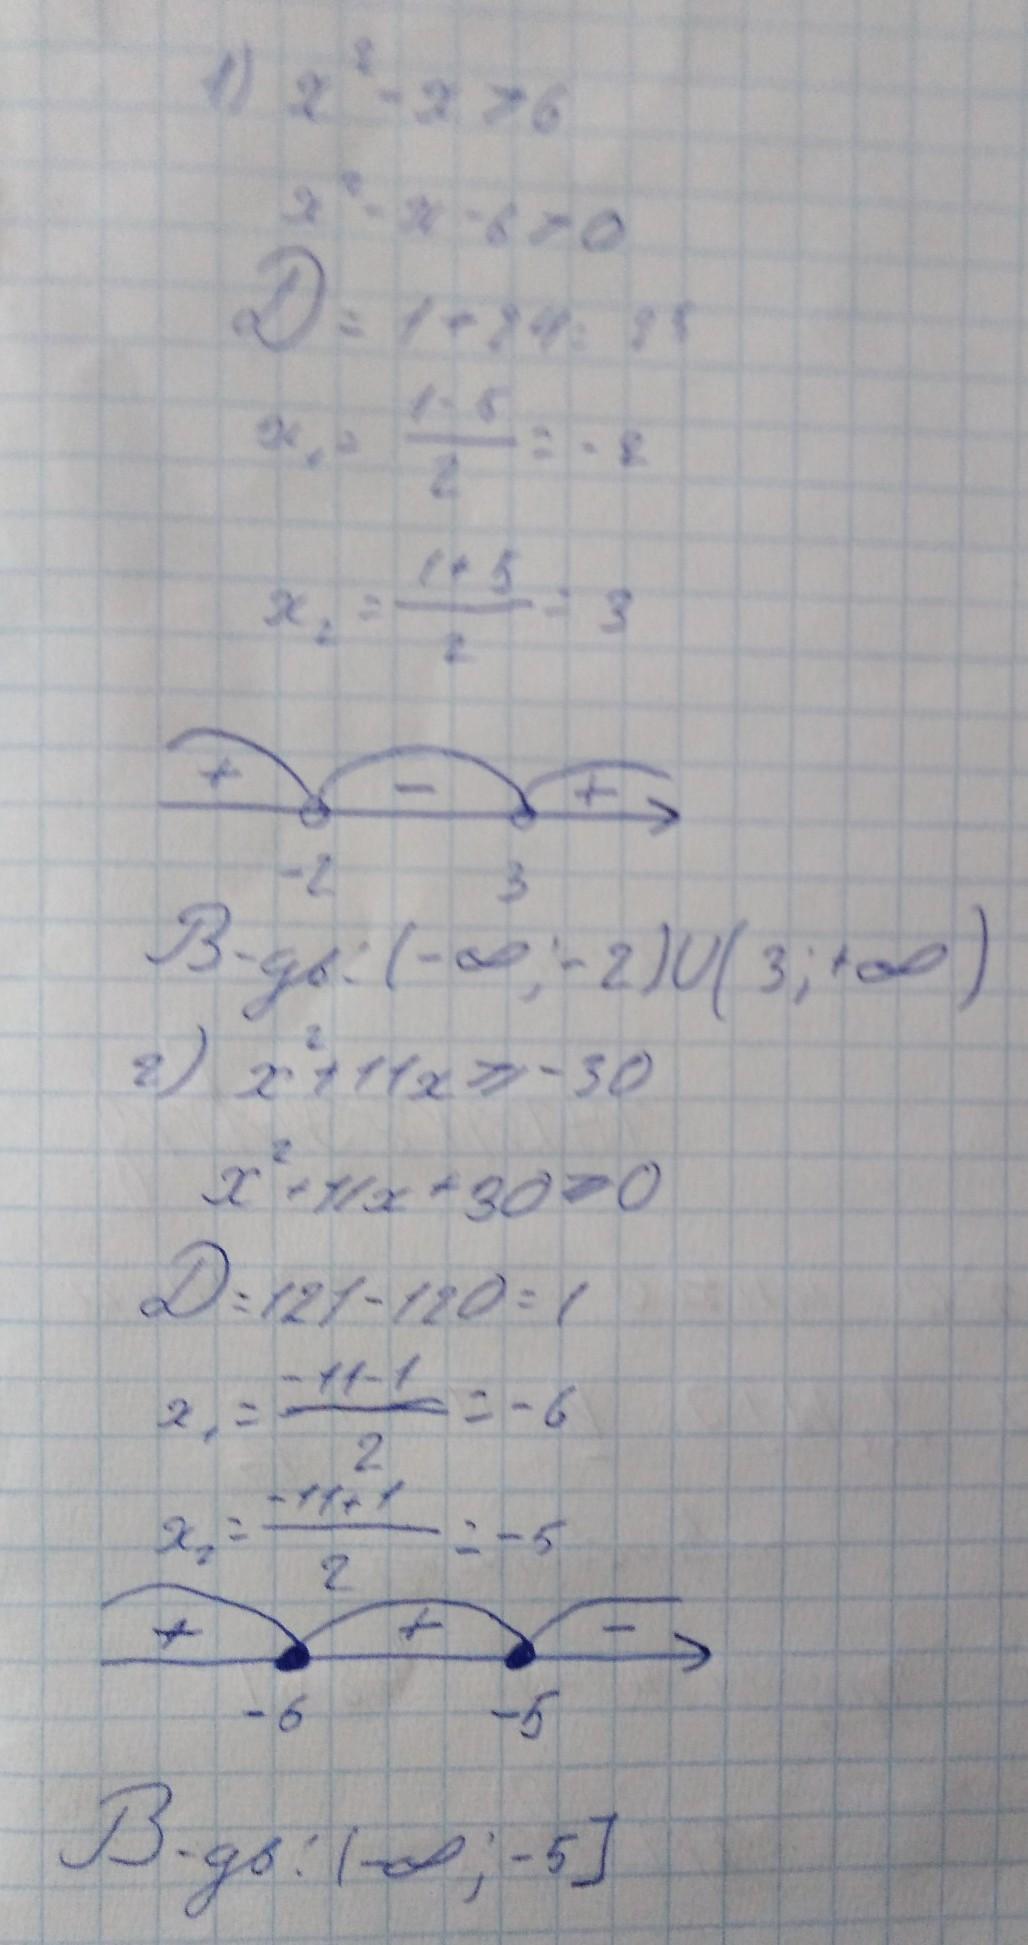 1) x² - x > 6
x² - x - 6 > 0
D = 1 + 24 = 25
x₁ = (1 - 5)/2 = -2
x₂ = (1 + 5)/2 = 3
+ - +
-2 3
В-дь: (-∞; -2)∪(3; +∞)
2) x² + 11x ≥ -30
x² + 11x + 30 ≥ 0
D = 121 - 120 = 1
x₁ = (-11 - 1)/2 = -6
x₂ = (-11 + 1)/2 = -5
+ + -
-6 -5
В-дь: (-∞; -5]